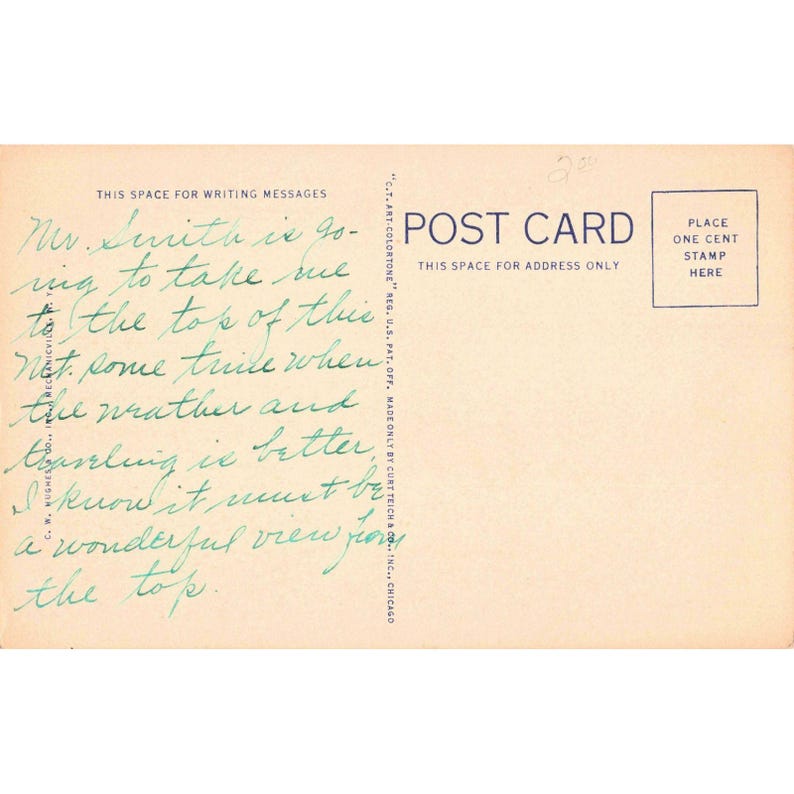 THIS SPACE FOR WRITING MESSAGES
Mr. Smith is go-
ing to take me
to the top of this
Mt. some time when
the weather and
traveling is better.
I know it must be
a wonderful view from
the top.
C. W. HUGHES & CO., INC., MECHANICVILLE, N. Y.
"C.T. ART-COLORTONE" REG. U.S. PAT. OFF. MADE ONLY BY CURT TEICH & CO., INC., CHICAGO
2 00
POST CARD
THIS SPACE FOR ADDRESS ONLY
PLACE
ONE CENT
STAMP
HERE